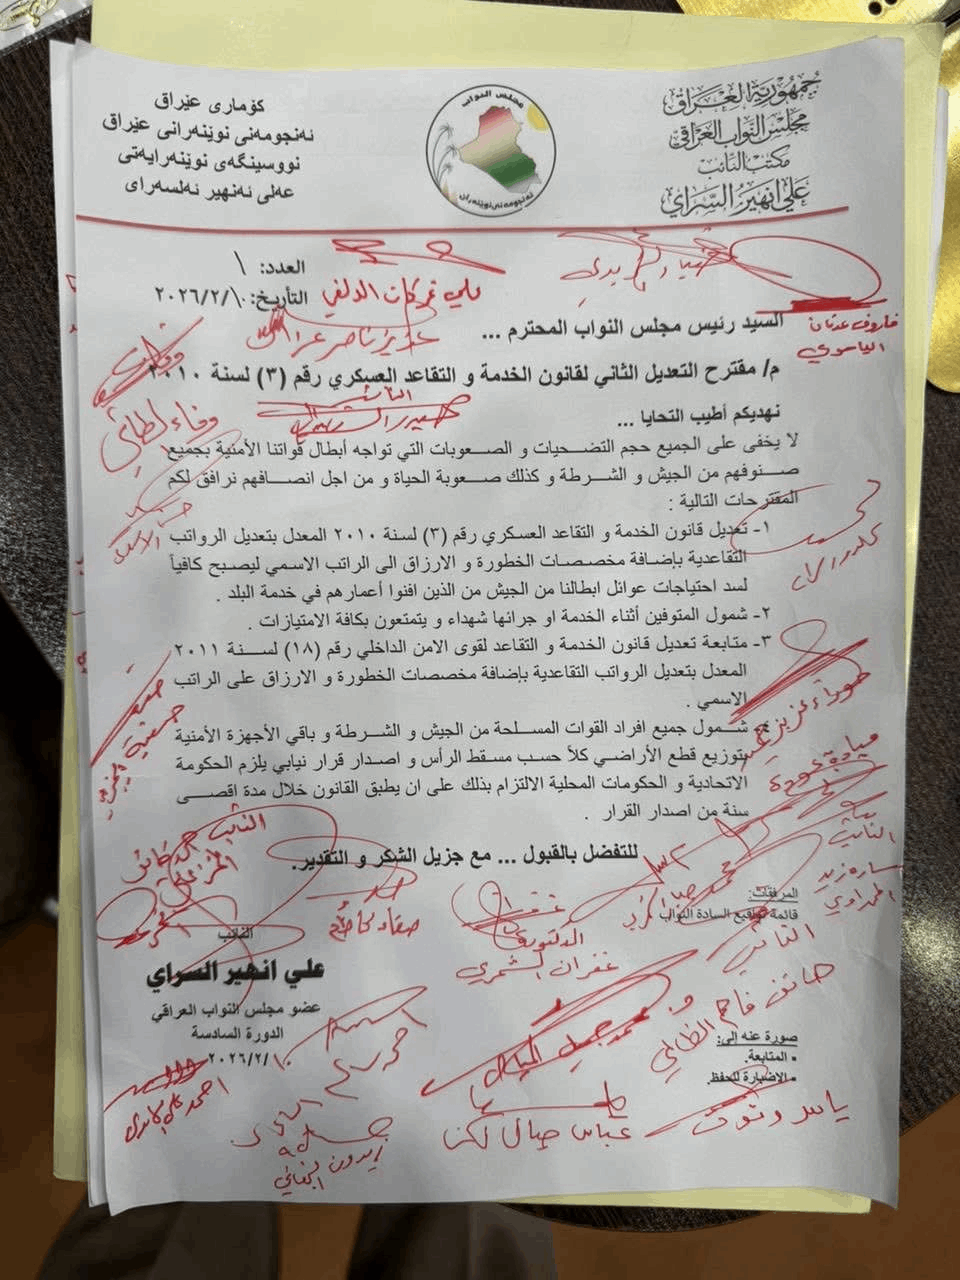 جمهورية العراق
مجلس النواب العراقي
مكتب النائب
علي انهير السراي
كۆماری عێراق
ئەنجومەنی نوێنەرانی عێراق
نووسینگەی نوێنەرایەتی
عەلی ئەنهیر ئەلسەرای
مجلس النواب
ئەنجومەنی نوێنەران
العدد: ١
التأريخ: ٢٠٢٦/٢/١٠
السيد رئيس مجلس النواب المحترم ...
م/ مقترح التعديل الثاني لقانون الخدمة و التقاعد العسكري رقم (٣) لسنة ٢٠١٠
نهديكم أطيب التحايا ...
لا يخفى على الجميع حجم التضحيات و الصعوبات التي تواجه أبطال قواتنا الأمنية بجميع
صنوفهم من الجيش و الشرطة و كذلك صعوبة الحياة و من اجل انصافهم نرافق لكم
المقترحات التالية :
١- تعديل قانون الخدمة و التقاعد العسكري رقم (٣) لسنة ٢٠١٠ المعدل بتعديل الرواتب
التقاعدية بإضافة مخصصات الخطورة و الارزاق الى الراتب الاسمي ليصبح كافياً
لسد احتياجات عوائل ابطالنا من الجيش من الذين افنوا أعمارهم في خدمة البلد .
٢- شمول المتوفين أثناء الخدمة او جرائها شهداء و يتمتعون بكافة الامتيازات .
٣- متابعة تعديل قانون الخدمة و التقاعد لقوى الامن الداخلي رقم (١٨) لسنة ٢٠١١
المعدل بتعديل الرواتب التقاعدية بإضافة مخصصات الخطورة و الارزاق على الراتب
الاسمي .
شمول جميع افراد القوات المسلحة من الجيش و الشرطة و باقي الأجهزة الأمنية
بتوزيع قطع الأراضي كلاً حسب مسقط الرأس و اصدار قرار نيابي يلزم الحكومة
الاتحادية و الحكومات المحلية الالتزام بذلك على ان يطبق القانون خلال مدة اقصى
سنة من اصدار القرار .
للتفضل بالقبول ... مع جزيل الشكر و التقدير.
المرفقات:
قائمة تواقيع السادة النواب
النائب
علي انهير السراي
عضو مجلس النواب العراقي
الدورة السادسة
٢٠٢٦/٢/١٠
صورة عنه إلى:
▪ المتابعة.
▪ الاضبارة للحفظ.
فاروق عدنان
الياسري
وفاء الطائي
صفاء كاطع
الدكتورة
غفران الشمري
النائب
سارة زيد
النائب
محمد جميل المياحي
ياسر وتوت